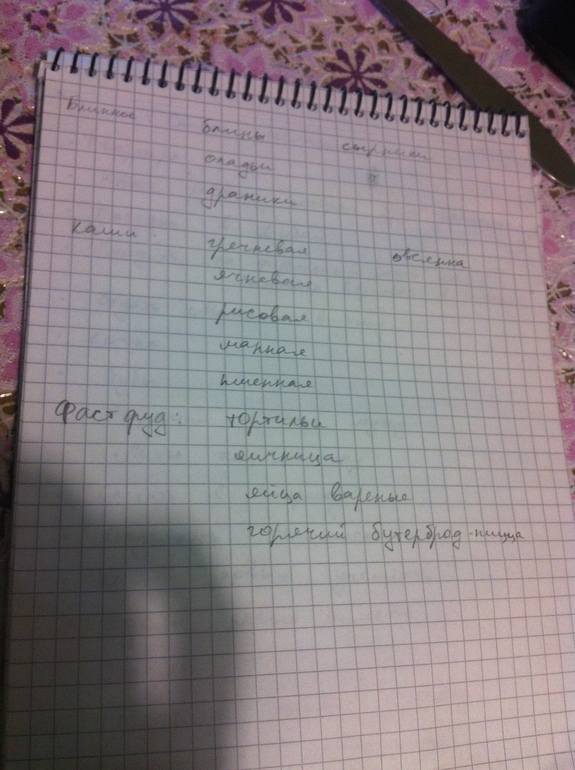 Блинное блины сырники
оладьи
драники
Каши гречневая овсянка
ячневая
рисовая
манная
пшенная
Фаст фуд: тортильи
яичница
яйца вареные
горячий бутерброд-пицца